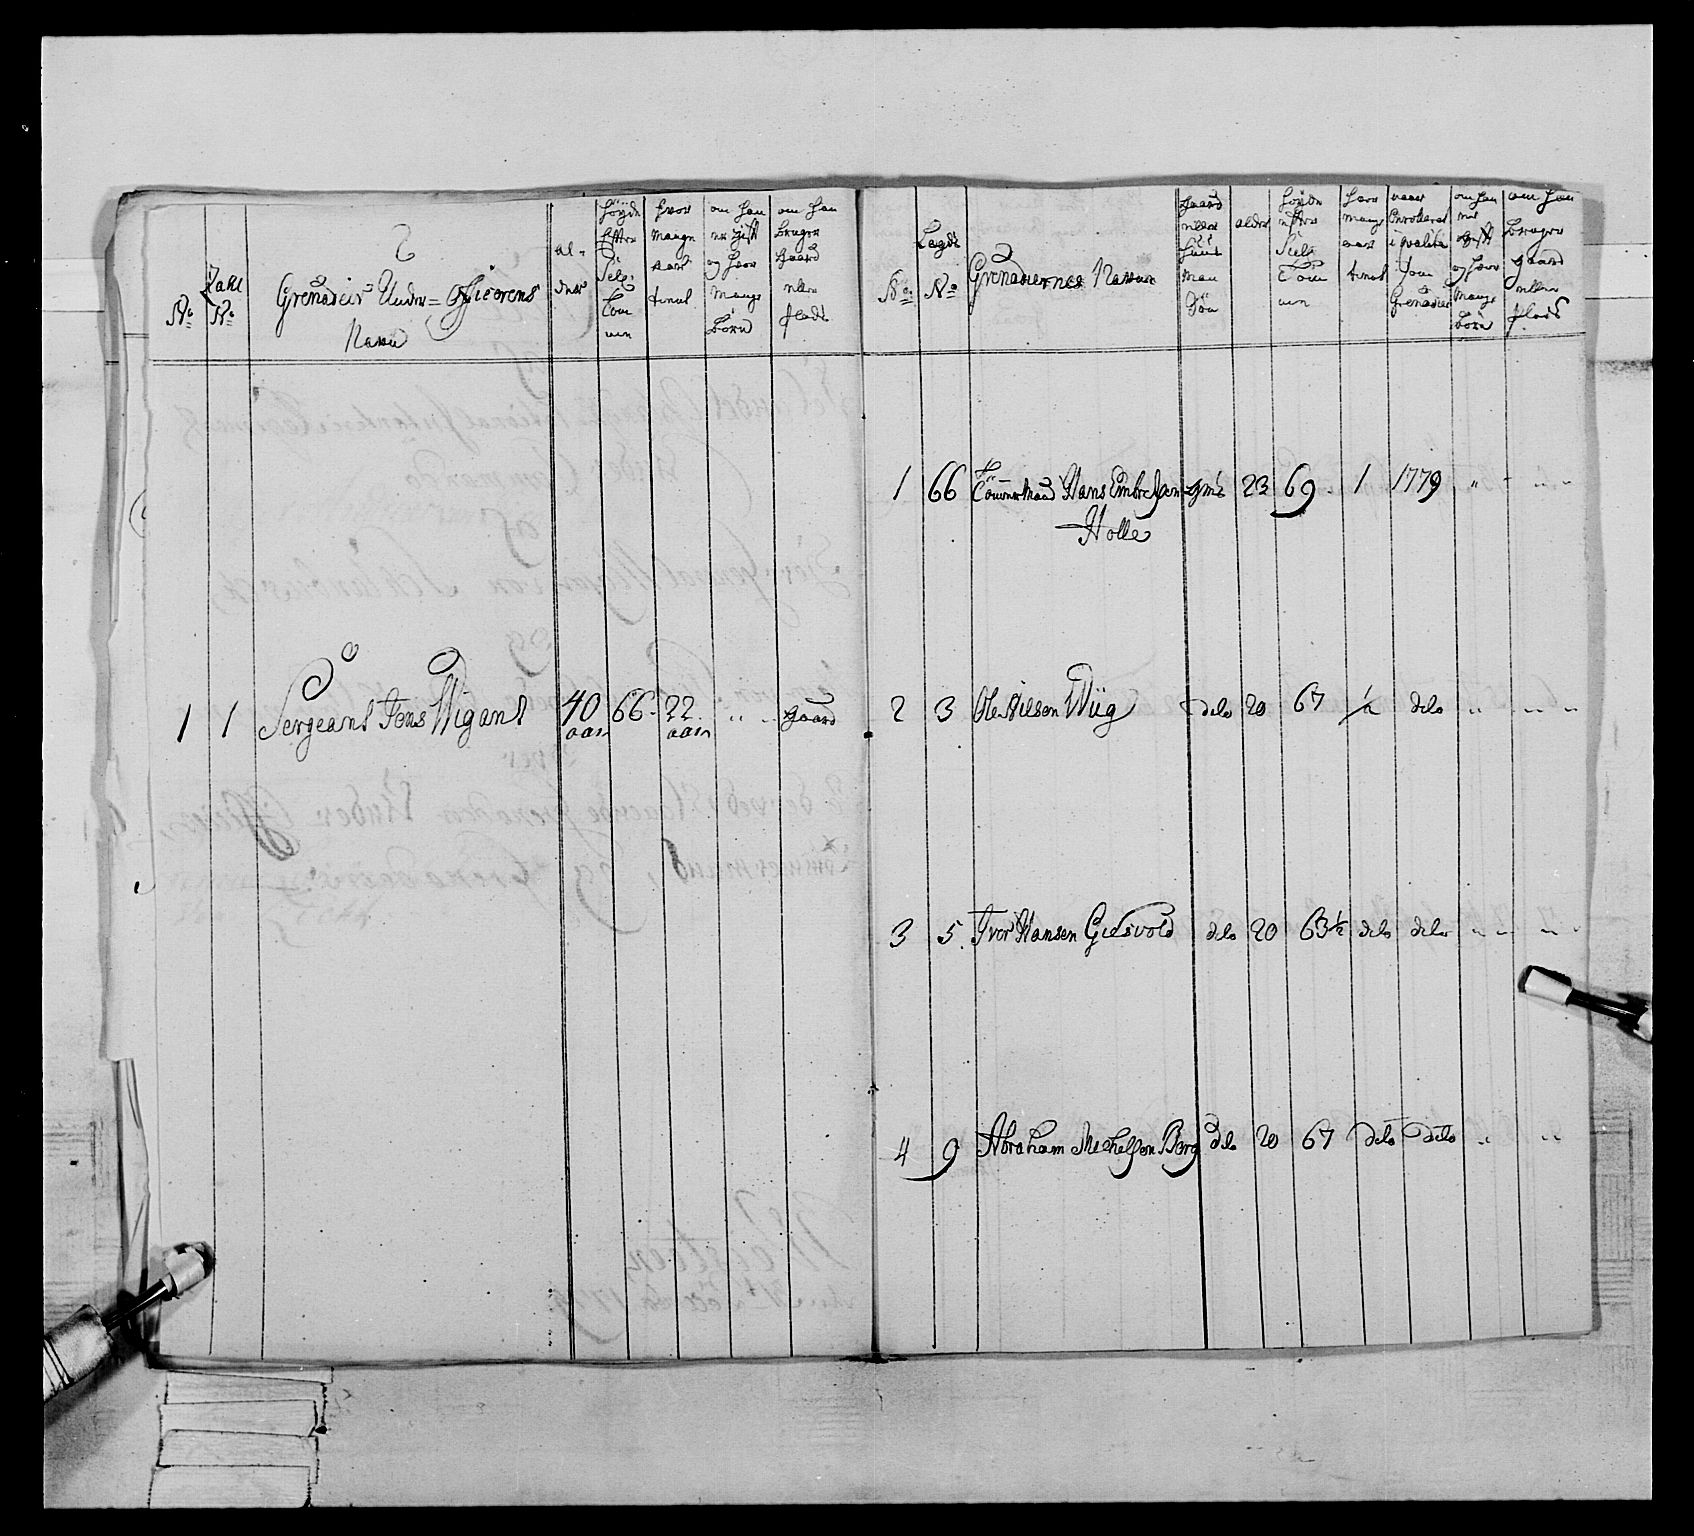 No
Tahl No
Grenadeir Under= Officerens
Navn
al=
der
Høyde
Efter
Siel:
Tom
men
hvor
mange
aar
tient
om han
er gift
og hvor
mange
børn
om han
bruger
gaard
eller
plads
1 1 Sergeant Jens Wigant 40 aar 66 22 aar " " gaard
No
Lægds
No
Grenaderernes Navne
gaard
eller
huus
man
søn
alder
høyde
efter
Siel:
Tom
men
hvor
mange
aar
tient
naar
Enrolleret
i qvalité
som
Grenader
om han
er
gift
og hvor
mange
børn
om han
bruger
gaard
eller
plads
1 66 Tömmermand Hans Embretsen gms 23 69 1 1779 " " " "
Holle
2 3 Ole Nilsen Wiig dito 20 67 1/2 dito " " " "
3 5 Iver Hansen Gidsvold dito 20 63½ dito dito " " " "
4 9 Abraham Michelsen Berg dito 20 67 dito dito " "